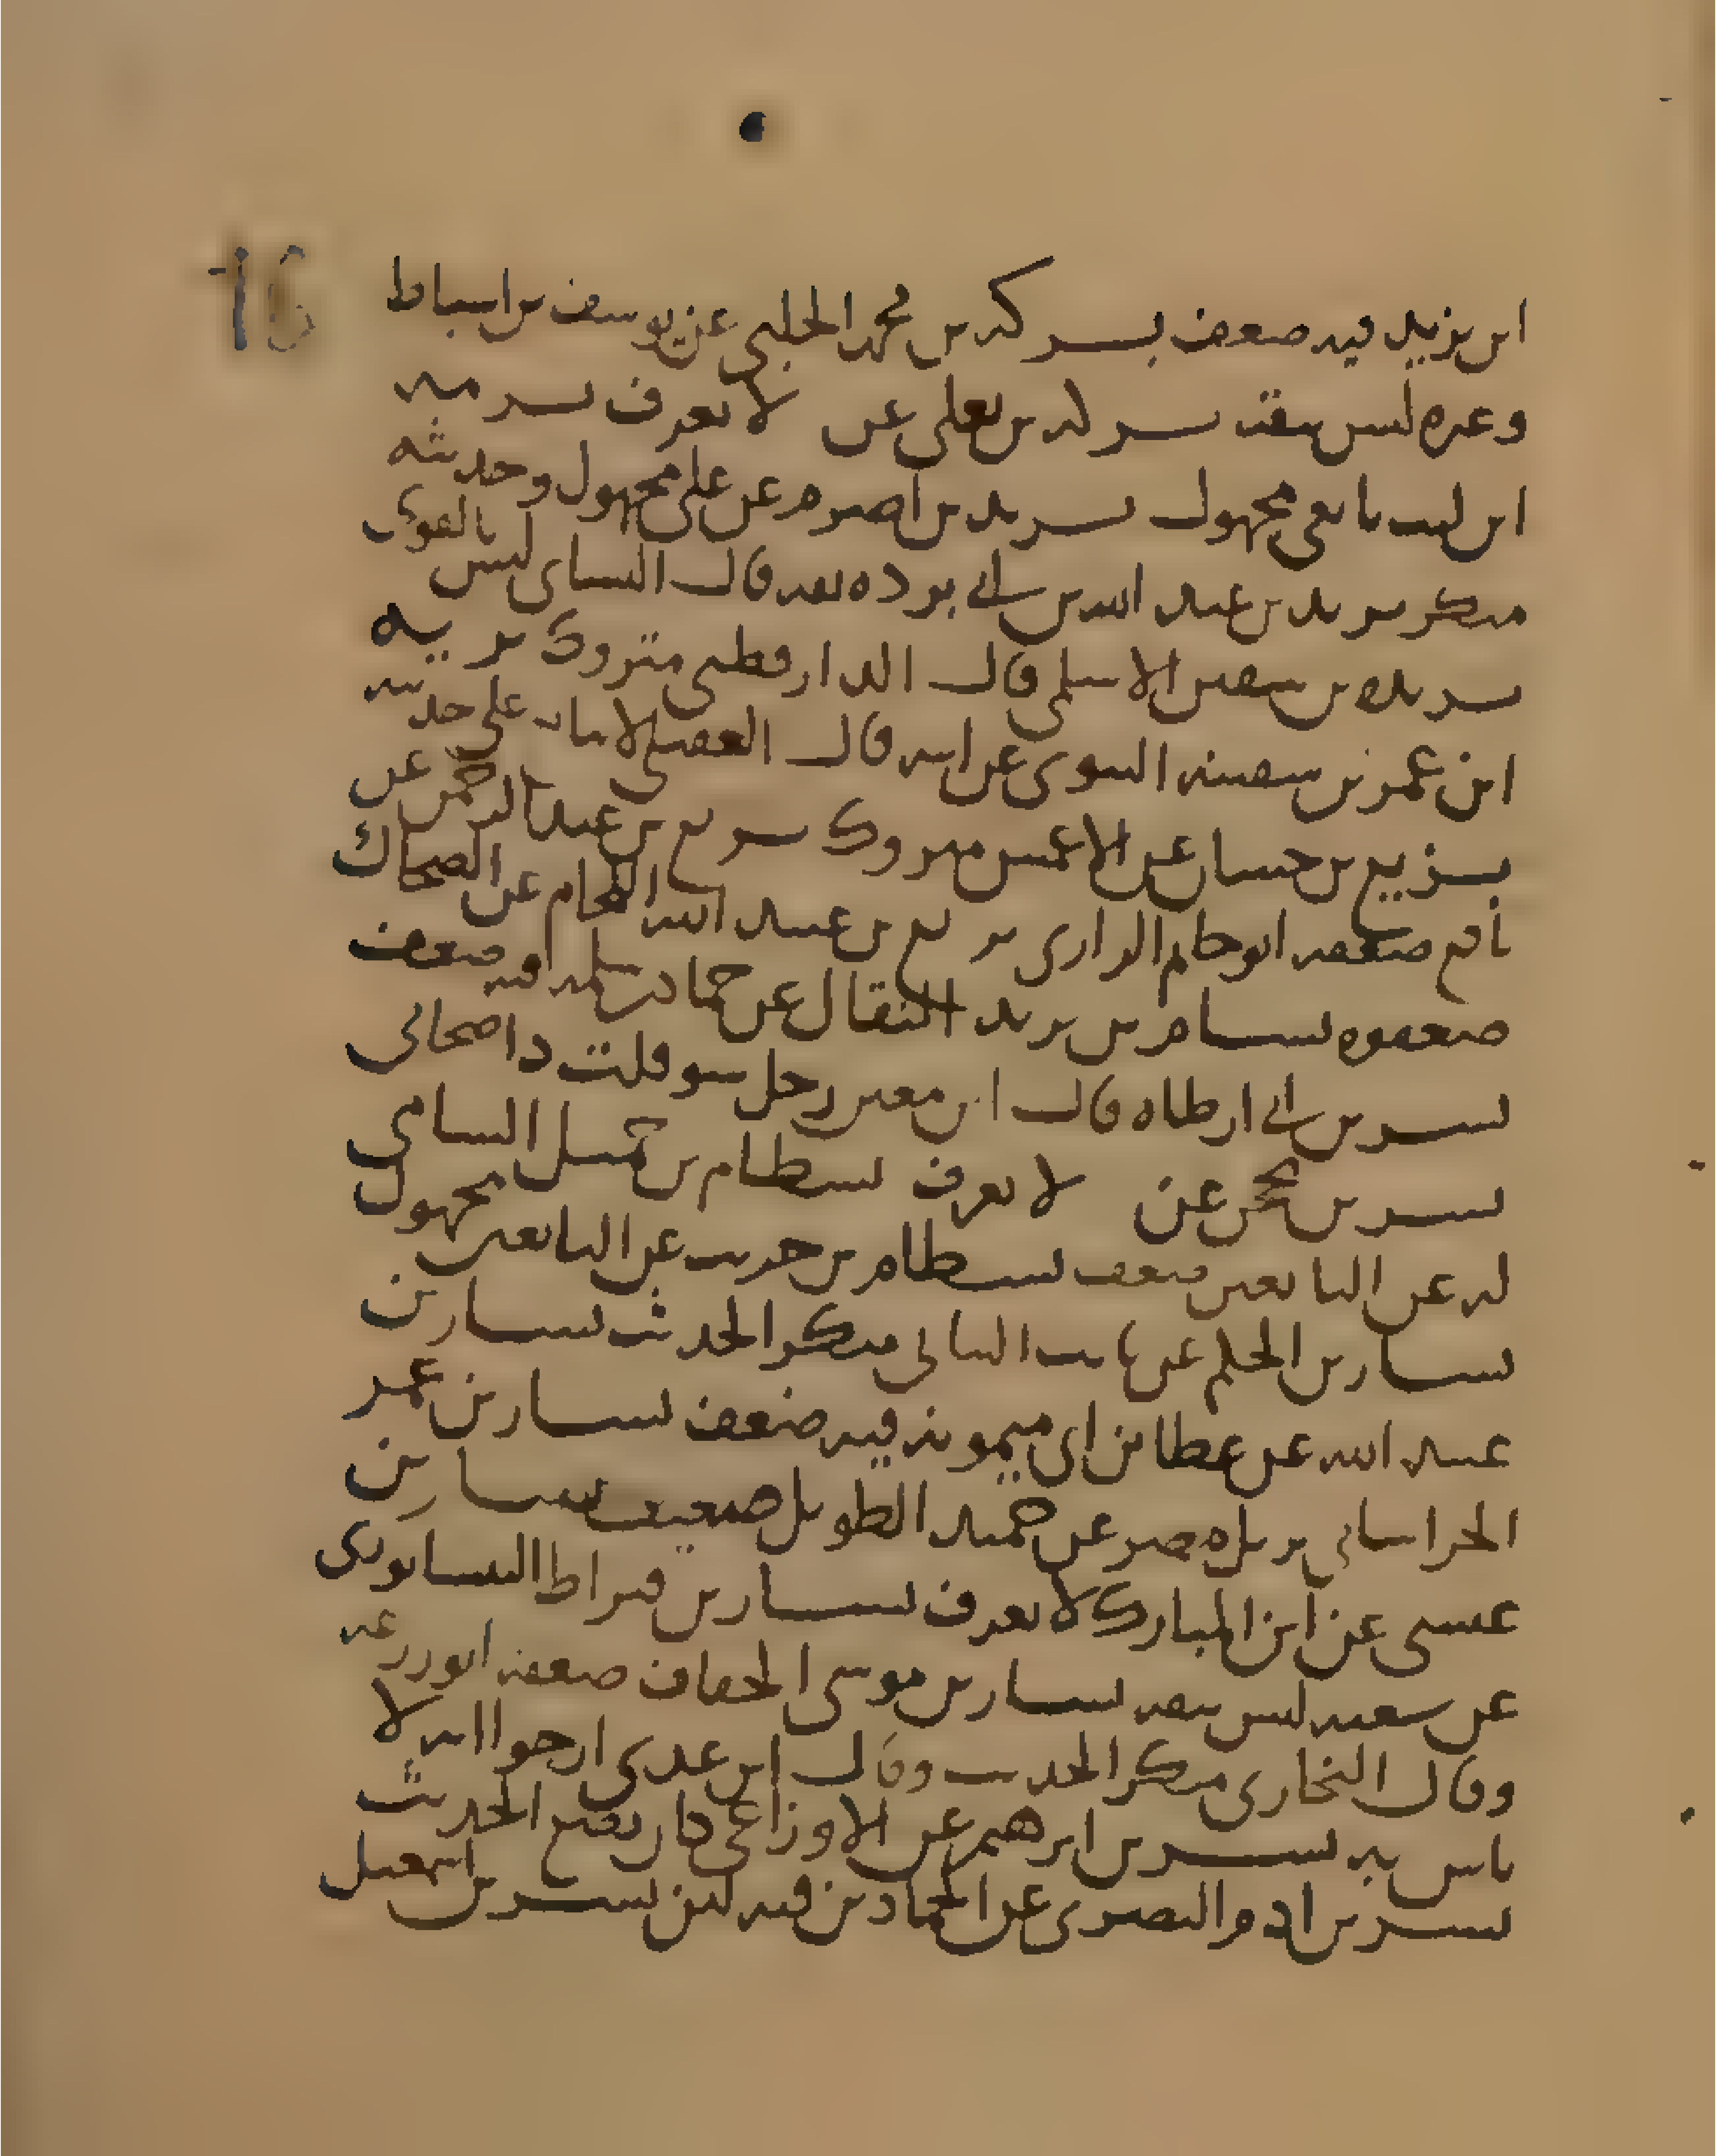 16
ابن يزيد فيه ضعف بركة بن محمد الحلبي عن يوسف بن اسباط
وغيره ليس بثقة بركة بن يعلى عن لا يعرف برمة
ابن ليث تابعي مجهول بريد بن اصرم عن علي مجهول وحديثه
منكر بريد بن عبد الله بن ابي بردة ثقة قال النسائي ليس بالقوي
بريدة بن سفين الاسلمي قال الدارقطني متروك بريه
ابن عمر بن سفينة السوى عن ابيه قال العقيلي لا يتابع على حديثه
بزيع بن حسان عن الاعمش متروك بزيع بن عبد الرحمن عن
نافع ضعفه ابو حاتم الرازي بزيع بن عبد الله اللحام عن الضحاك
ضعفوه بسام بن يزيد النقال عن حماد بن سلمة فيه ضعف
بسر بن ابي ارطاه قال ابن معين رجل سو قلت ذا صحابي
بسر بن محجن عن لا يعرف بسطام بن جميل الشامي
له عن التابعين ضعف بسطام بن حريث عن التابعين مجهول
بشار بن الحكم عن ثابت البناني منكر الحديث بشار بن
عبيد الله عن عطا بن ابي ميمونة فيه ضعف بشار بن عمر
الخراساني نزيل مصر عن حميد الطويل ضعيف بشار بن
عيسى عن ابن المبارك لا يعرف بشار بن قيراط النيسابوري
عن سعيد ليس بثقة بشار بن موسى الخفاف ضعفه ابو زرعه
وقال البخاري منكر الحديث وقال ابن عدي ارجو انه لا
باس به بشر بن ابرهيم عن الاوزاعي كان يضع الحديث
بشر بن ادم البصري عن الحمادين فيه لين بشر بن اسمعيل